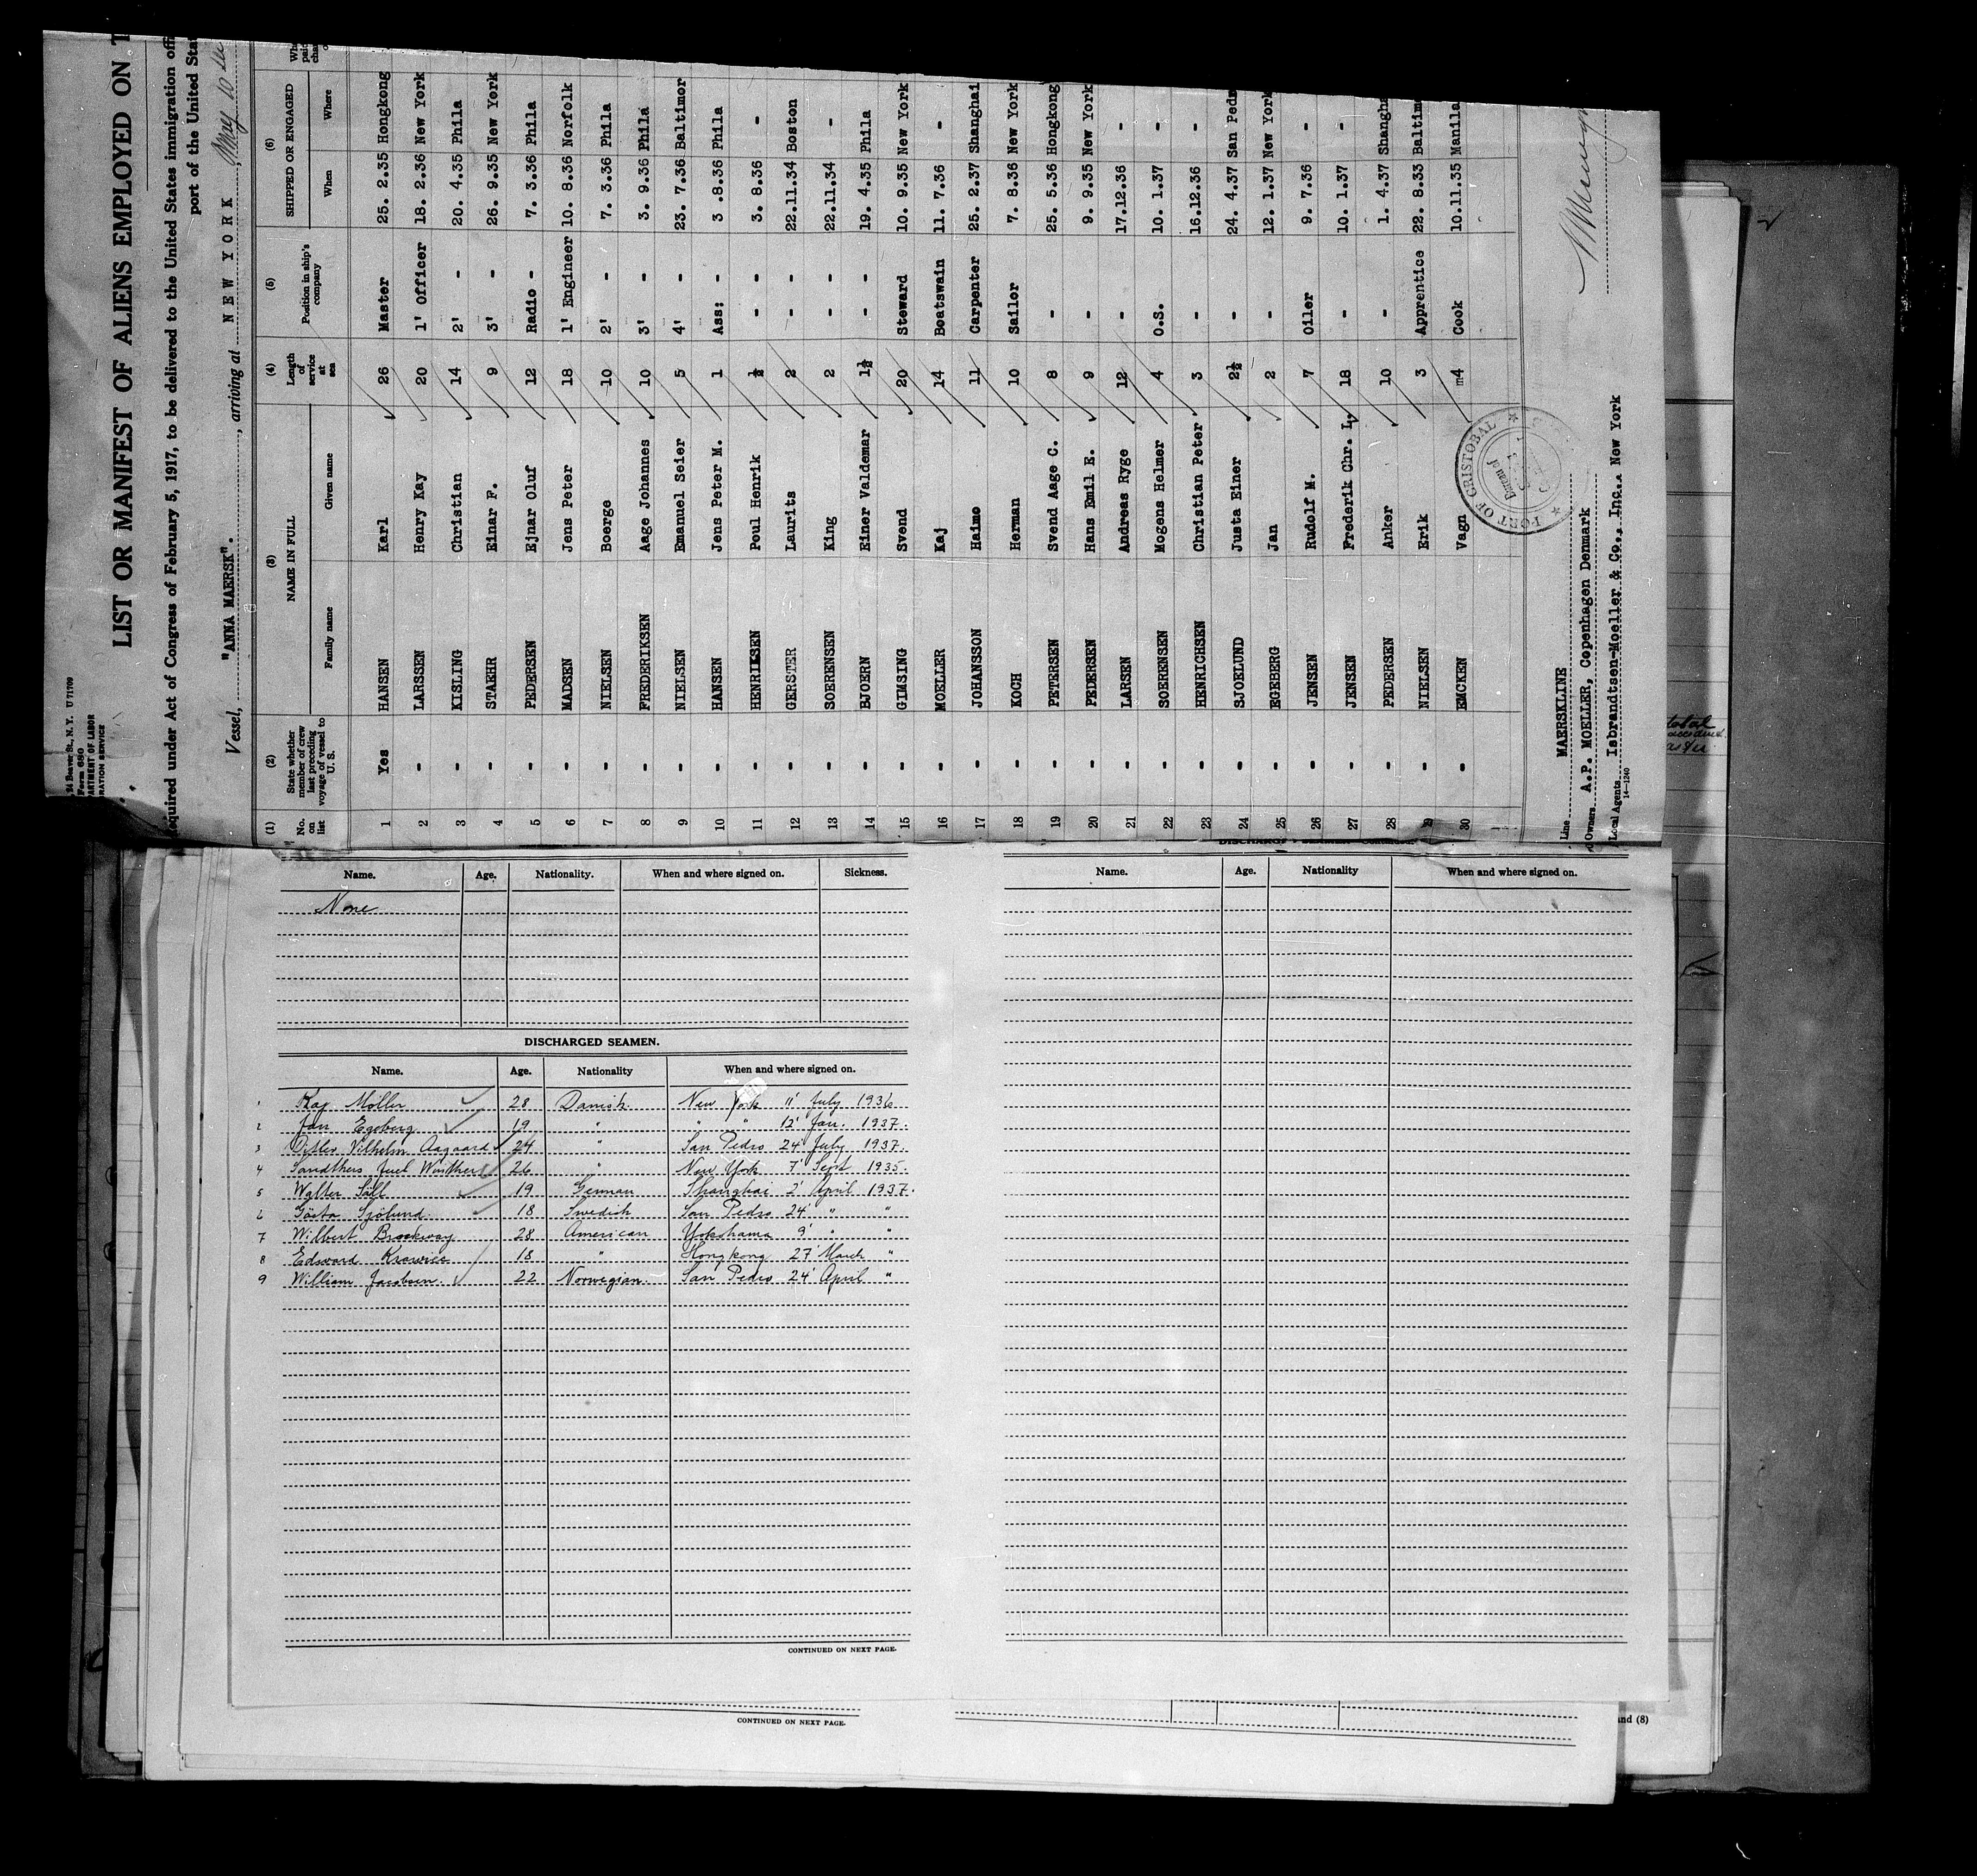 , 24 Beaver St., N. Y. U 71709
Form 680
LIST OR MANIFEST OF ALIENS EMPLOYED ON
Required under Act of Congress of February 5, 1917, to be delivered to the United States immigration
port of the United
Vessel, "ANNA MAERSK". , arriving at NEW YORK , May 10
(1) (2) (3) (4) (5) (6)
No. on list State whether member of crew last preceding voyage of vessel to U. S. NAME IN FULL Length of service at sea Position in ship's company SHIPPED OR ENGAGED
Family name Given name When Where
1 Yes HANSEN Karl 26 Master 25. 2.35 Hongkong
2 - LARSSEN Henry Kay 20 1' Officer 18. 2.36 New York
3 - KISLING Christian 14 2' - 20. 4.35 Phila
4 - STAEHR Einar F. 9 3' - 26. 9.35 New York
5 - PEDERSEN Ejnar Oluf 12 Radio - 7. 3.36 Phila
6 - MADSEN Jens Peter 18 1' Engineer 10. 8.36 Norfolk
7 - NIELSEN Boerge 10 2' - 7. 3.36 Phila
8 - FREDERIKSEN Aage Johannes 10 3' - 3. 9.36 Phila
9 - NIELSEN Emanuel Seier 5 4' - 23. 7.36 Baltimor
10 - HANSEN Jens Peter M. 1 Ass: - 3 .8.36 Phila
11 - HENRIKSEN Poul Henrik ½ - - 3. 8.36 -
12 - GERSTER Laurits 2 - - 22.11.34 Boston
13 - SOERENSEN King 2 - - 22.11.34 -
14 - BJOERN Einer Valdemar 1½ - - 19. 4.35 Phila
15 - GIMSING Svend 20 Steward 10. 9.35 New York
16 - MOELLER Kaj 14 Boatswain 11. 7.36 -
17 - JOHANSSON Haimo 11 Carpenter 25. 2.37 Shanghai
18 - KOCH Herman 10 Sailor 7. 8.36 New York
19 - PETERSEN Svend Aage C. 8 - 25. 5.36 Hongkong
20 - PEDERSEN Hans Emil E. 9 - 9. 9.35 New York
21 - LARSEN Andreas Ryge 12 - 17.12.36 -
22 - SOERENSEN Mogens Helmer 4 O.S. 10. 1.37 -
23 - HENRICHSEN Christian Peter 3 - 16.12.36 -
24 - SJOELUND Justa Einer 2½ - 24. 4.37 San Pedr
25 - EGEBERG Jan 2 - 12. 1.37 New York
26 - JENSEN Rudolf M. 7 Oiler 9. 7.36 -
27 - JENSEN Frederik Chr. L. 18 - 10. 1.37 -
28 - PEDERSEN Anker 10 - 1. 4.37 Shangha
29 - NIELSEN Erik 3 Apprentice 22. 8.33 Baltim
30 - EMCKEN Vagn 4 Cook 10.11.35 Manila
PORT OF CRISTOBAL
Bureau of
Line MAERSKLINE
Owners A.P. MOELLER, Copenhagen Denmark
Local Agents Isbrandtsen-Moeller & Co., Inc., New York
14-1240
Name. Age. Nationality. When and where signed on. Sickness.
None
DISCHARGED SEAMEN.
Name. Age. Nationality When and where signed on.
1 Kaj Möller 28 Danish New York 11' July 1936
2 Jan Egeberg 19 " " " 12' Jan. 1937.
3 Ditlev Vilhelm Aagaard 24 " San Pedro 24' July 1937.
4 Juel 26 " New York 7' Sept 1935.
5 Walter Söll 19 German Shanghai 2' April 1937.
6 Gösta Sjölund 18 Swedish San Pedro 24' " "
7 Wilbert Brookway 28 American Yokohama 9' " "
8 Edward 18 " Hongkong 27' March "
9 William Jacobsen. 22 Norwegian. San Pedro 24' April "
CONTINUED ON NEXT PAGE.
Name. Age. Nationality When and where signed on.
CONTINUED ON NEXT PAGE.
and (8)